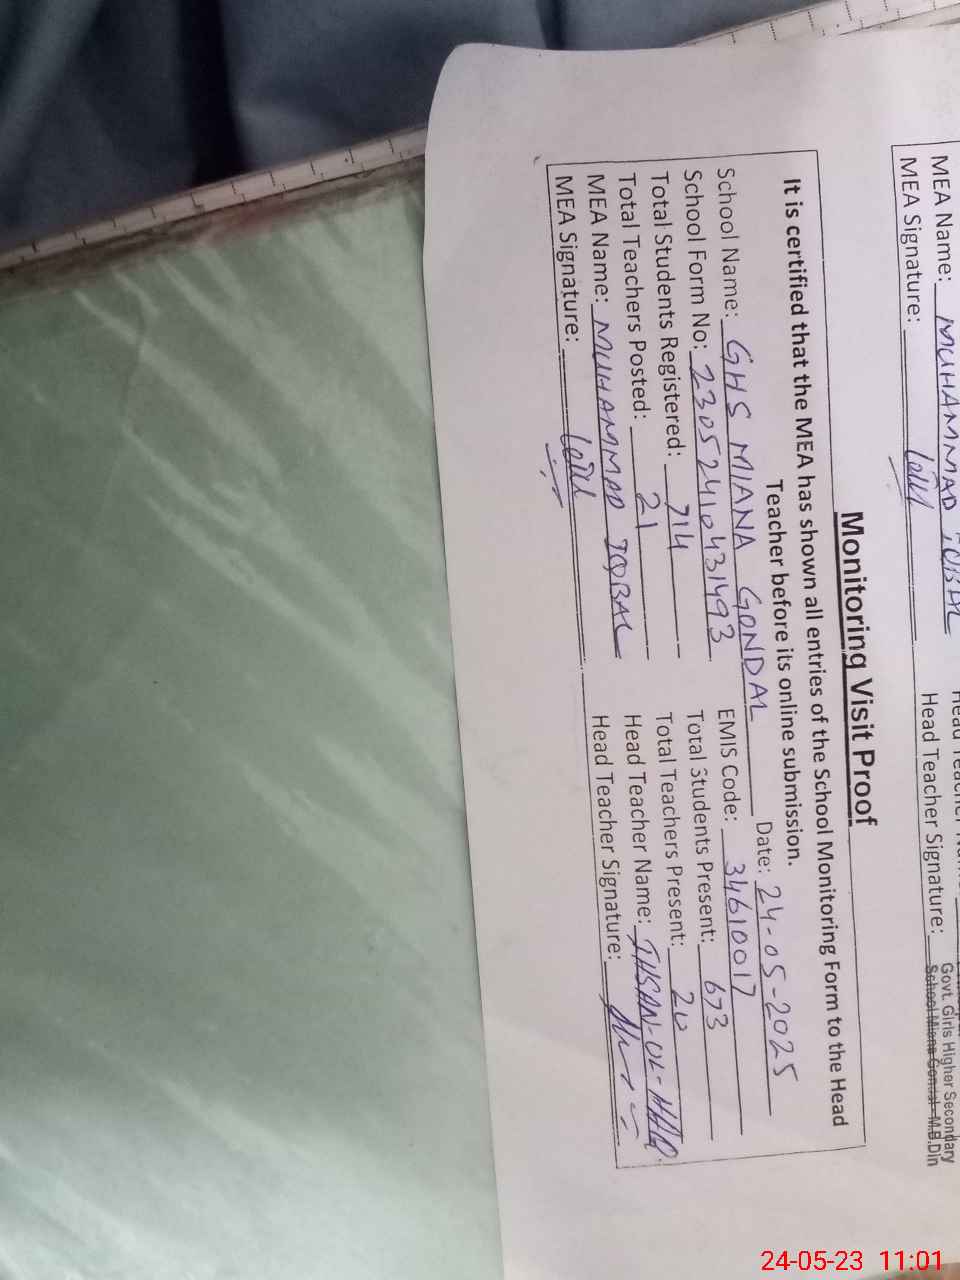 MEA Name: MUHAMMAD IQBAL
MEA Signature:
Head Teacher Signature:
Govt. Girls Higher Secondary
School Miana Gondal M.B.Din
Monitoring Visit Proof
It is certified that the MEA has shown all entries of the School Monitoring Form to the Head
Teacher before its online submission.
Date: 24-05-2025
School Name: GHS MIANA GONDAL EMIS Code: 34610017
School Form No: 23052410431493 Total Students Present: 673
Total Students Registered: 714 Total Teachers Present: 20
Total Teachers Posted: 21 Head Teacher Name: IHSAN-UL-HAQ
MEA Name: MUHAMMAD IQBAL Head Teacher Signature:
MEA Signature:
24-05-23 11:01